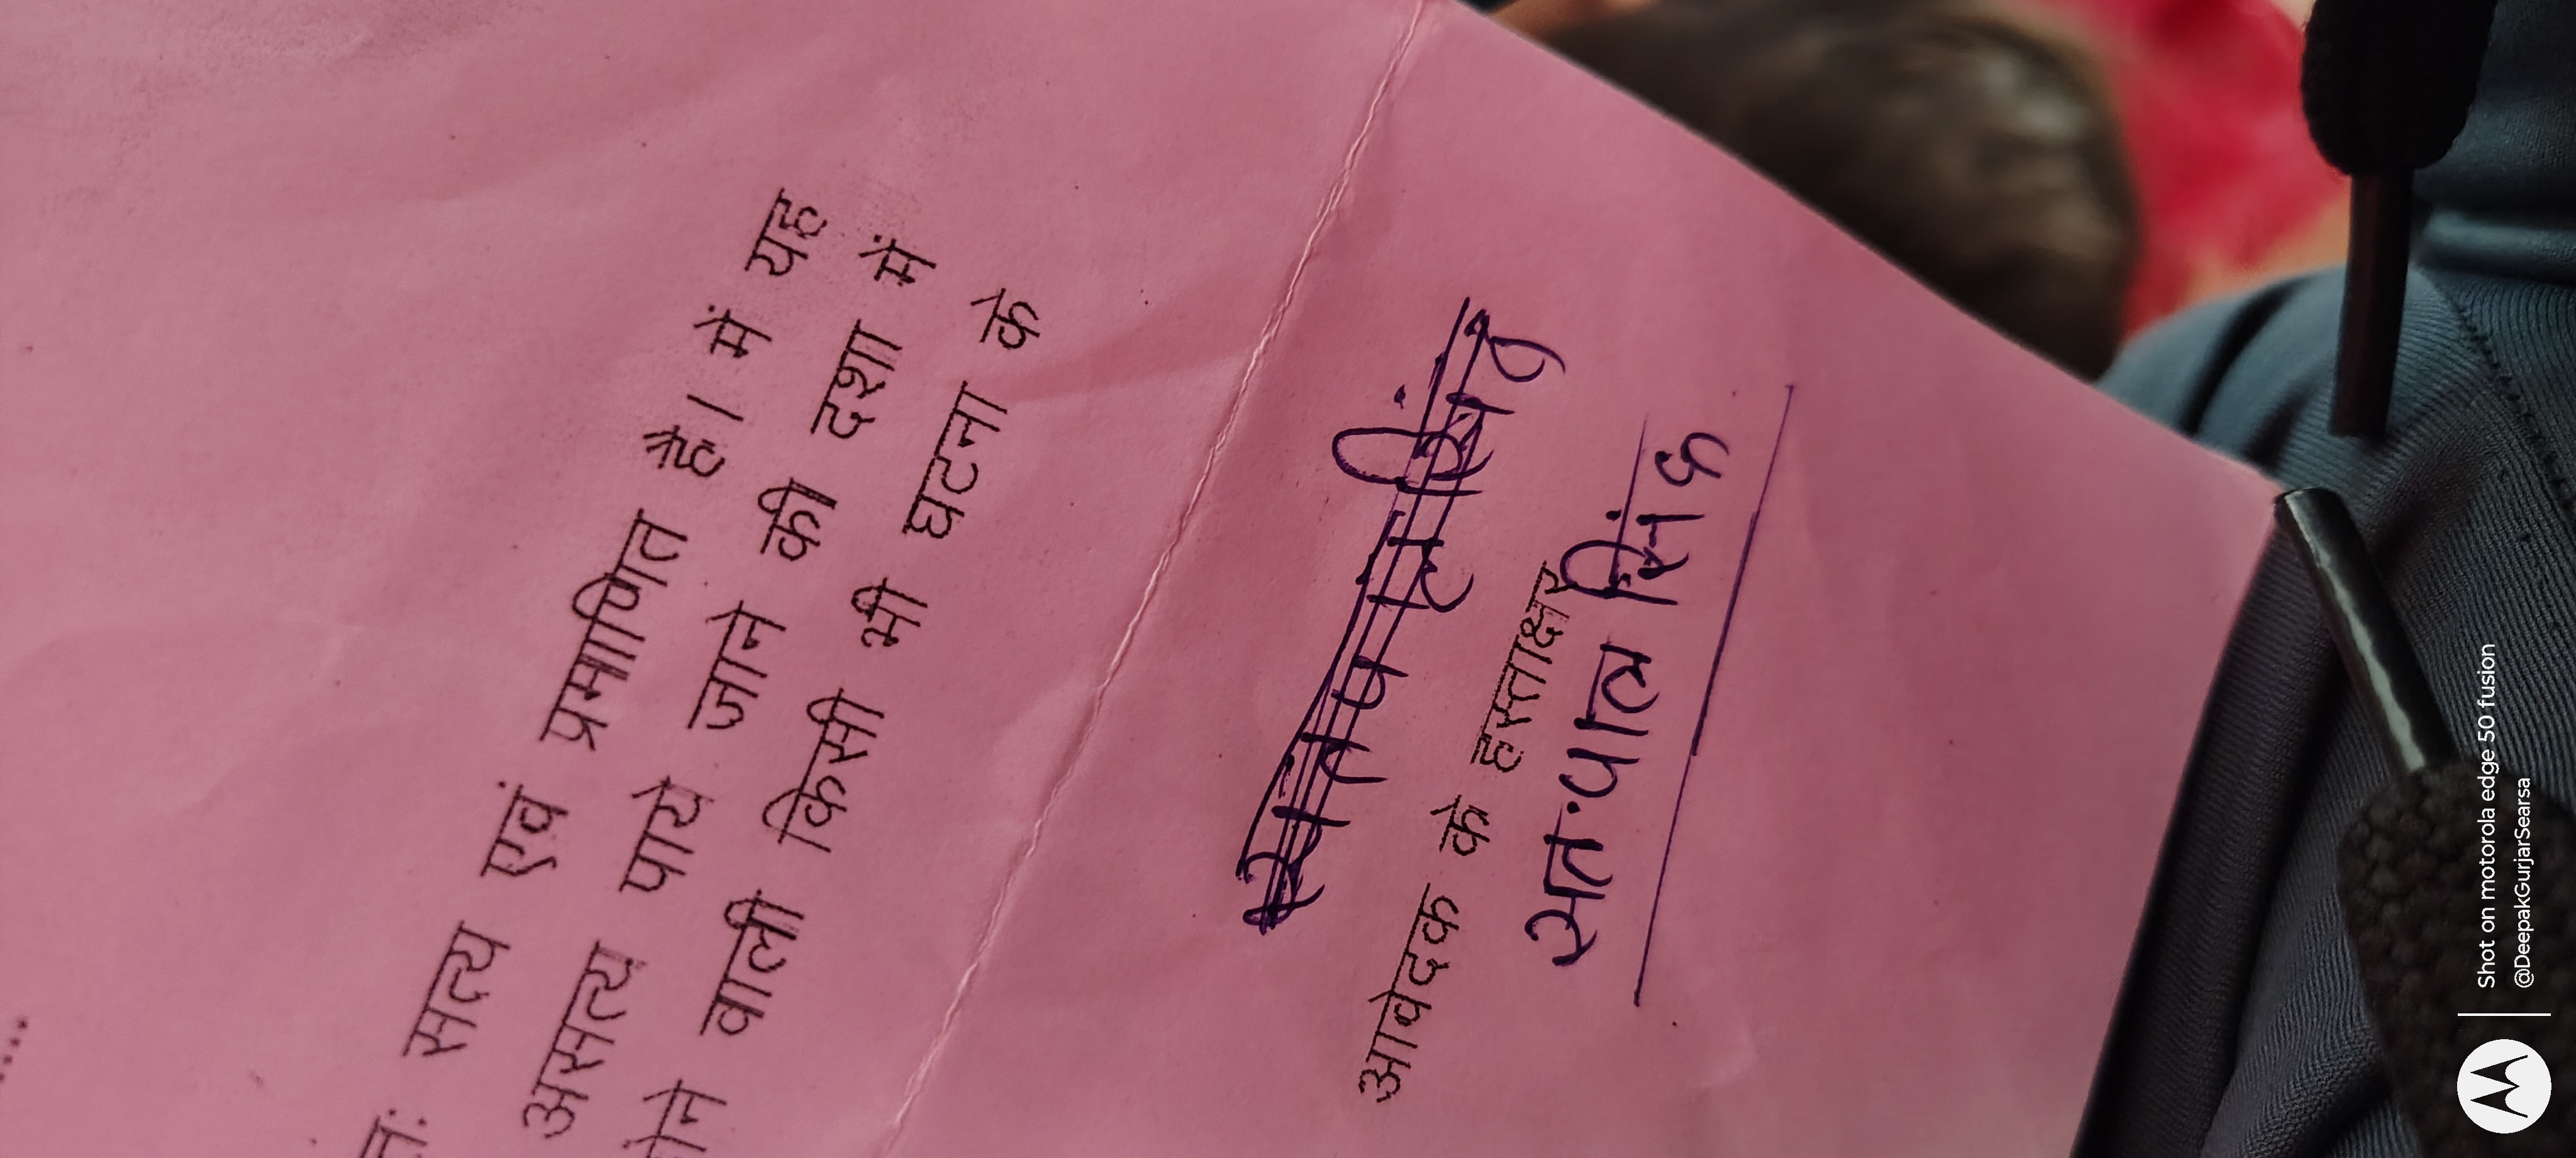 सत्य एवं प्रमाणित है। में यह
असत्य पाये जाने की दशा में
वाली किसी भी घटना के
आवेदक के हस्ताक्षर
सत.पाल सिंह
Shot on motorola edge 50 fusion
@DeepakGurjarSearsa